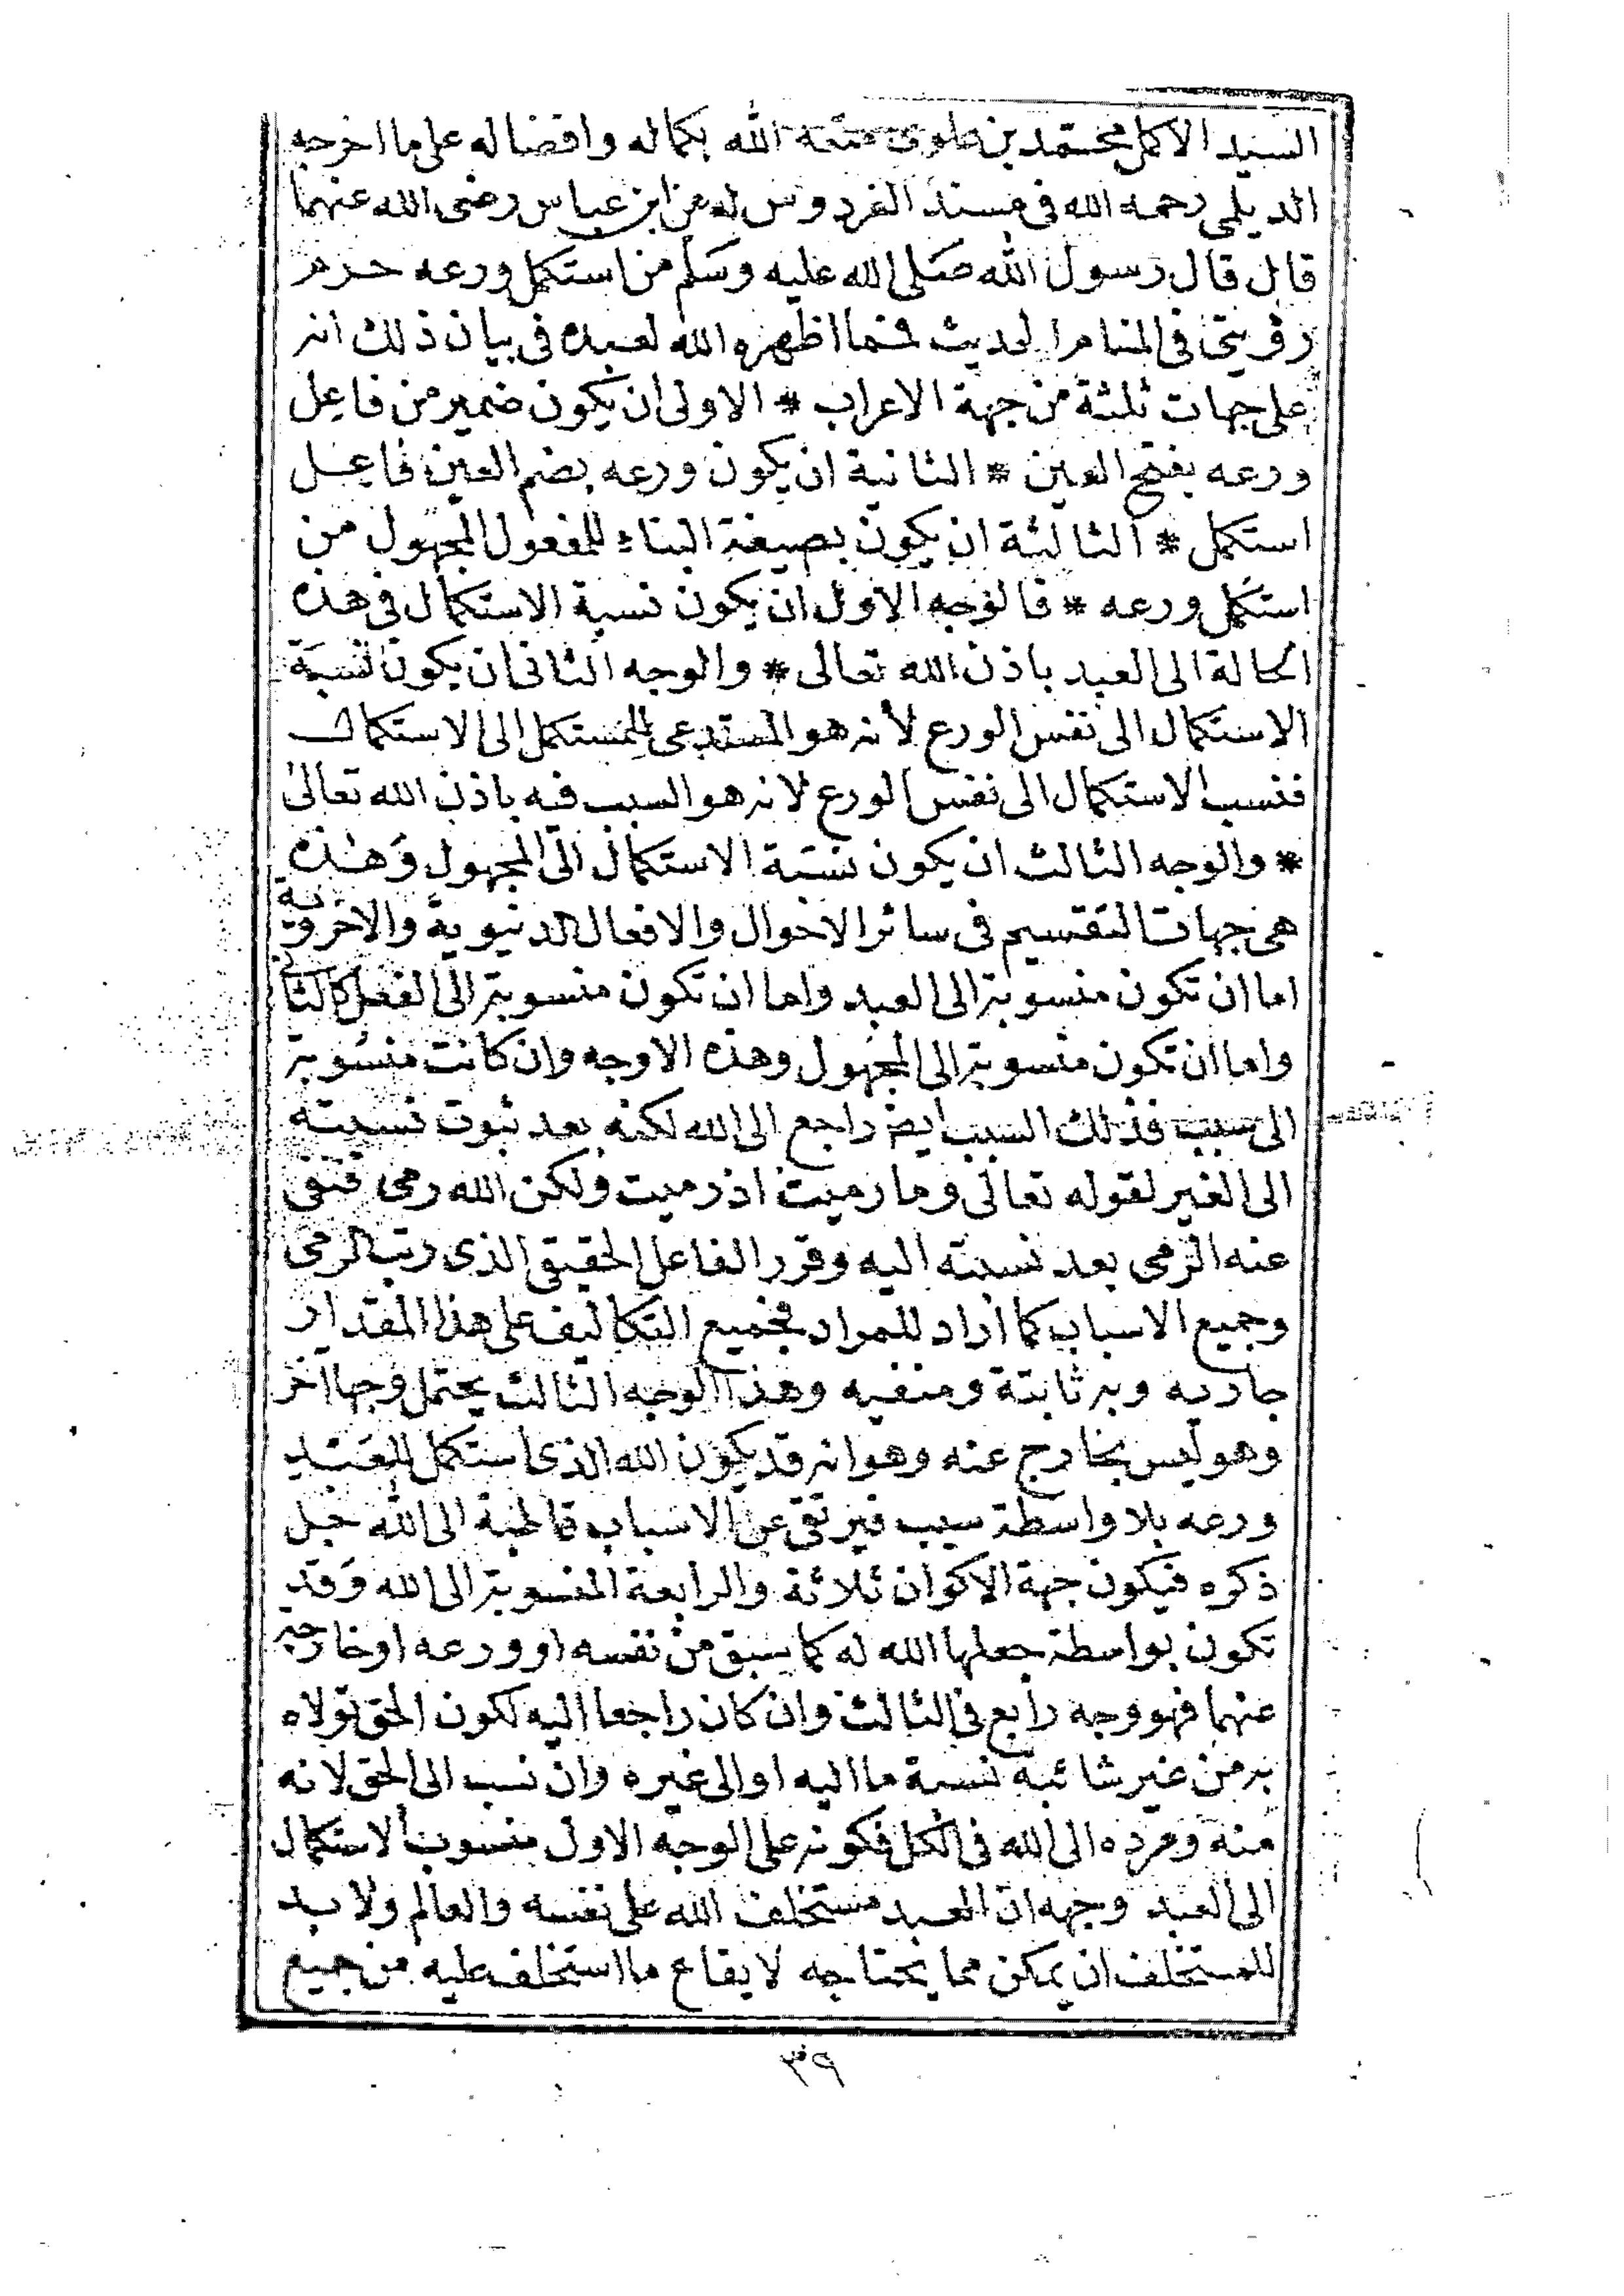 السيد الاكمل محمد بن علوى متعه الله بكماله وافضاله على ما اخرجه
الديلمى رحمه الله فى مسند الفردوس له عن ابن عباس رضى الله عنهما
قال قال رسول الله صلى الله عليه وسلم من استكمل ورعه حرم
رؤيتى فى المنام الحديث فما اظهره الله لعبده فى بيان ذلك انه
على جهات ثلثة من جهة الاعراب * الاولى ان يكون ضمير من فاعل
ورعه بفتح العين * الثانية ان يكون ورعه بضم العين فاعل
استكمل * الثالثة ان يكون بصيغة البناء للمفعول المجهول من
استكمل ورعه * فالوجه الاول ان يكون نسبة الاستكمال فى هذه
الحالة الى العبد باذن الله تعالى * والوجه الثانى ان يكون نسبة
الاستكمال الى نفس الورع لأنه هو المستدعى للمستكمل الى الاستكمال
فنسب الاستكمال الى نفس الورع لانه هو السبب فيه باذن الله تعالى
* والوجه الثالث ان يكون نسبة الاستكمال الى المجهول وهذه
هى جهات التقسيم فى سائر الاحوال والافعال الدنيوية والاخروية
اما ان تكون منسوبة الى العبد واما ان تكون منسوبة الى الفعل كالثانى
واما ان تكون منسوبة الى المجهول وهذه الاوجه وان كانت منسوبة
الى سبب فذلك السبب ايضا راجع الى الله لكنه بعد ثبوت نسبته
الى الغير لقوله تعالى وما رميت اذ رميت ولكن الله رمى فنفى
عنه الرمى بعد نسبته اليه وقرر الفاعل الحقيقى الذى رتب الرمى
وجميع الاسباب كما اراد للمراد فجميع التكاليف على هذا المقدار
جاريه وبه ثابتة ومنفيه وهذا الوجه الثالث يحتمل وجها اخر
وهو ليس بخارج عنه وهو انه قد يكون الله الذى استكمل للعبد
ورعه بلا واسطة سبب فيرتقى عن الاسباب قاطبة الى الله جل
ذكره فيكون جهة الاكوان ثلاثة والرابعة المنسوبة الى الله وقد
تكون بواسطة جعلها الله له كما يسبق من نفسه او ورعه او خارجه
عنهما فهو وجه رابع فى الثالث وان كان راجعا اليه لكون الحق تولاه
به من غير شائبة نسبة ما اليه او الى غيره وان نسب الى الحق لانه
منه ومرده الى الله فى الكل فكونه على الوجه الاول منسوب الاستكمال
الى العبد وجهه ان العبد مستخلف الله على نفسه والعالم ولا بد
للمستخلف ان يمكن مما يحتاجه لايقاع ما استخلف عليه من جميع
٣٩